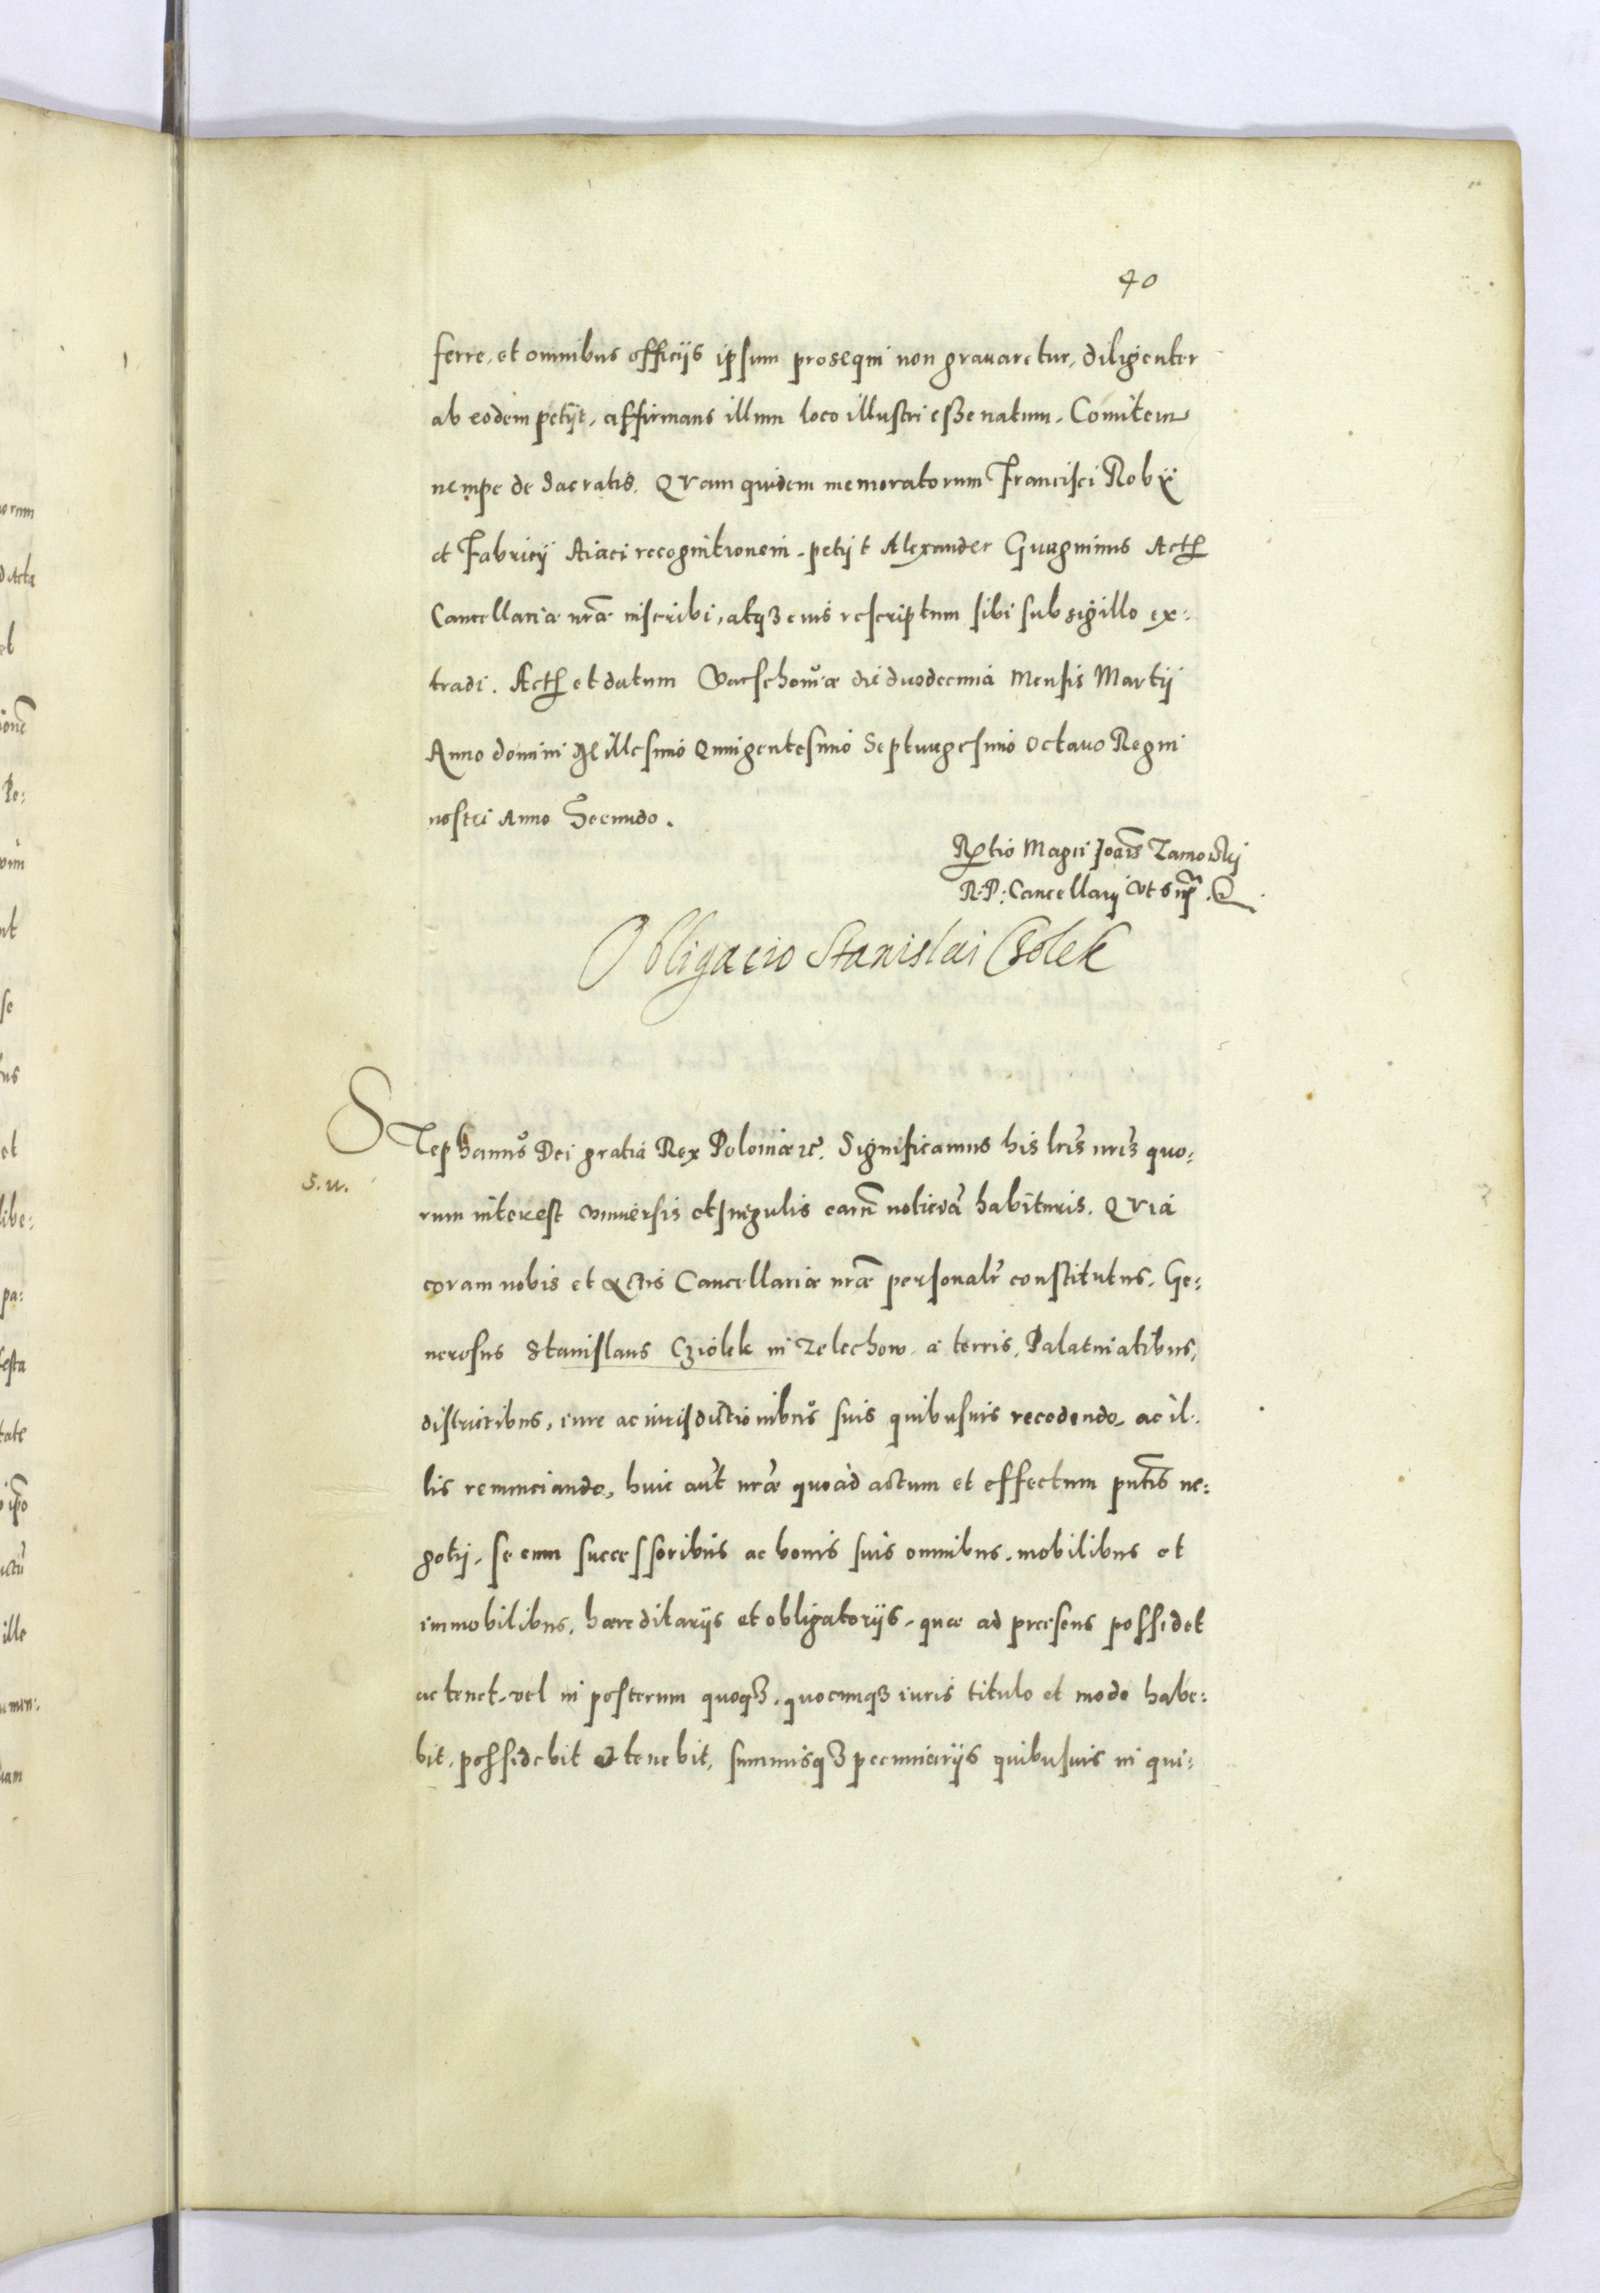 40
ferre, et omnibus officijs ipsum prosequi non grauaretur, diligenter
ab eodem petijt, affirmans illum loco illustri esse natum, Comitem
nempe de Sacratis. QVam quidem memoratorum Francisci Robij
et Fabricij Aiaci recognitionem, petijt Alexander Guagninus Actis
Cancellariæ nræ inscribi, atqz eius rescriptum sibi sub sigillo ex:
tradi. Actũ et datum Varschouiæ die duodecima Mensis Martij
Anno domini Millesimo Quingentesimo Septuagesimo octauo Regni
nostri Anno Secundo.
Rtio Magci Joãis Zamoiskj
R: P: Cancellarij vt sup
Obligacio Stanislai Czolek
STephanus Dei gratia Rex Poloniæ zc. Significamus his lris nris quo:
S. N.
rum interest vniuersis et singulis earũ noticiã habituris. QVia
coram nobis et Actis Cancellariæ nræ personalr constitutus, Ge:
nerosus Stanislaus Cziolek in Zelechow a terris, Palatinatibus,
districtibus, iure ac iurisdictionibus suis quibusuis recedendo, ac il:
lis renunciando, huic aut nræ quoad actum et effectum pntis ne:
gotij, se cum successoribus ac bonis suis omnibus, mobilibus et
immobilibus, hæreditarijs et obligatorijs, quæ ad præsens possidet
ac tenet, vel in posterum quoqz, quocunqz iuris titulo et modo habe:
bit, possidebit et tenebit, summisqz pecuniarijs quibusuis in qui: